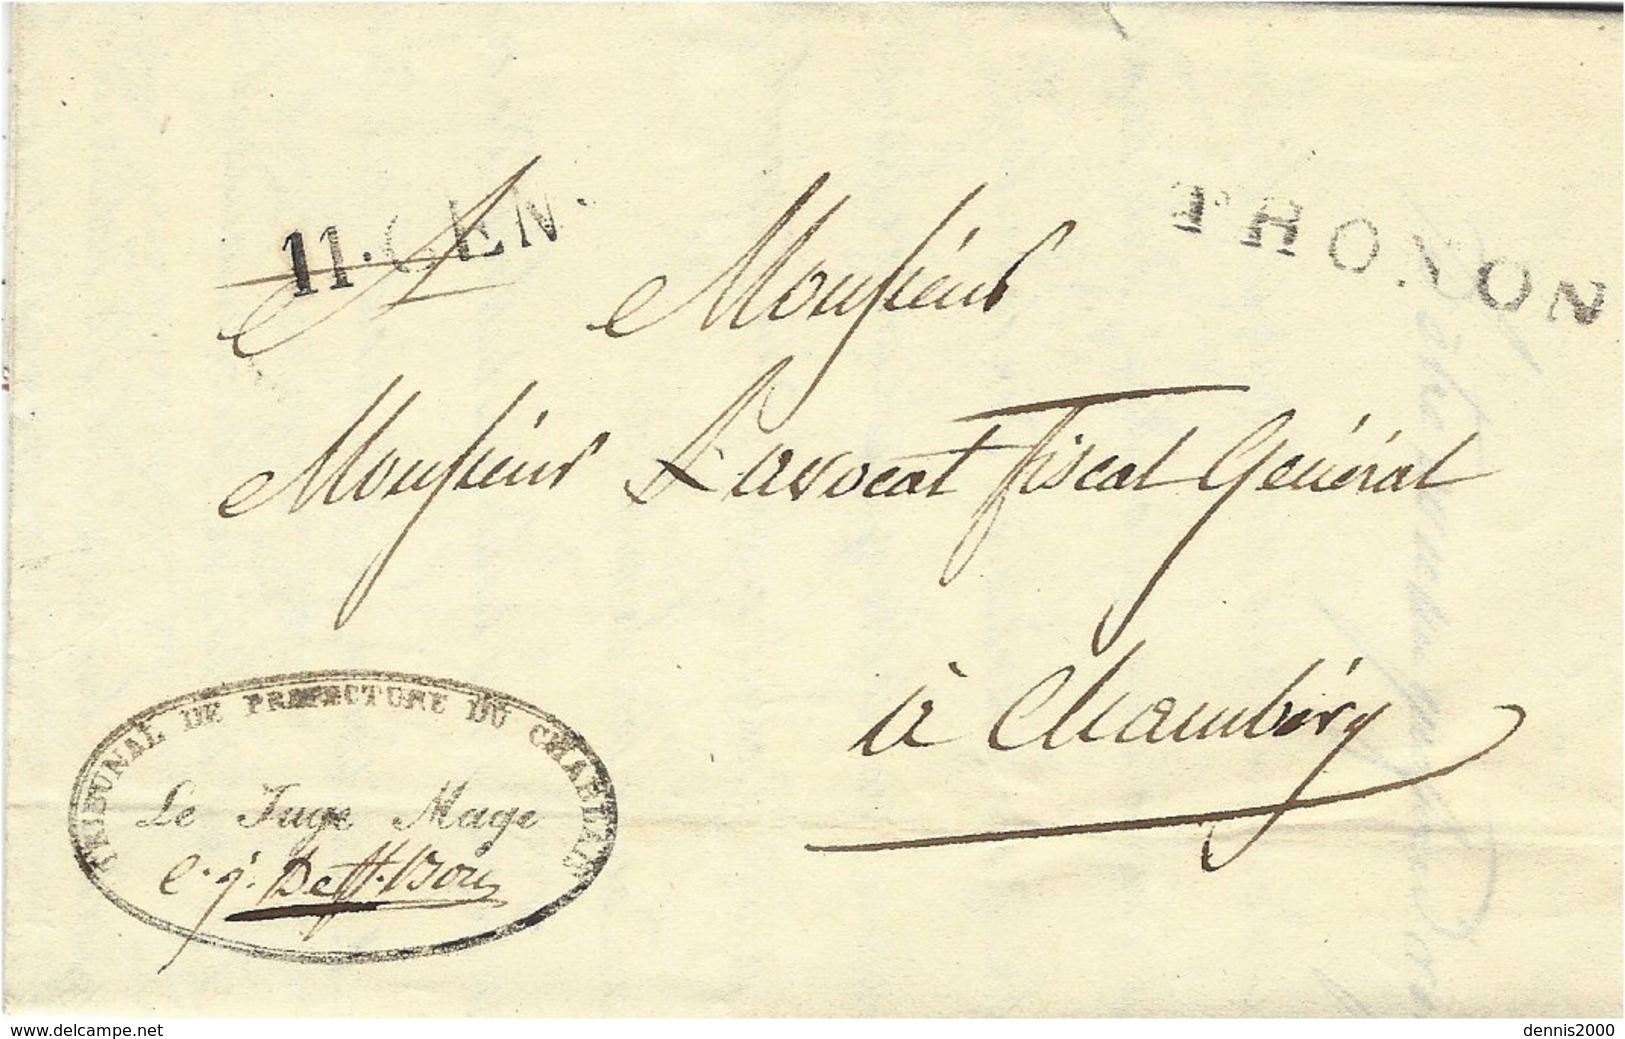 11. GEN.
THONON
Monsieur
Monsieur L'avocat Fiscal Général
à Chambéry
TRIBUNAL DE PREFECTURE DU CHABLAIS
Le Juge Mage
www.delcampe.net
dennis2000